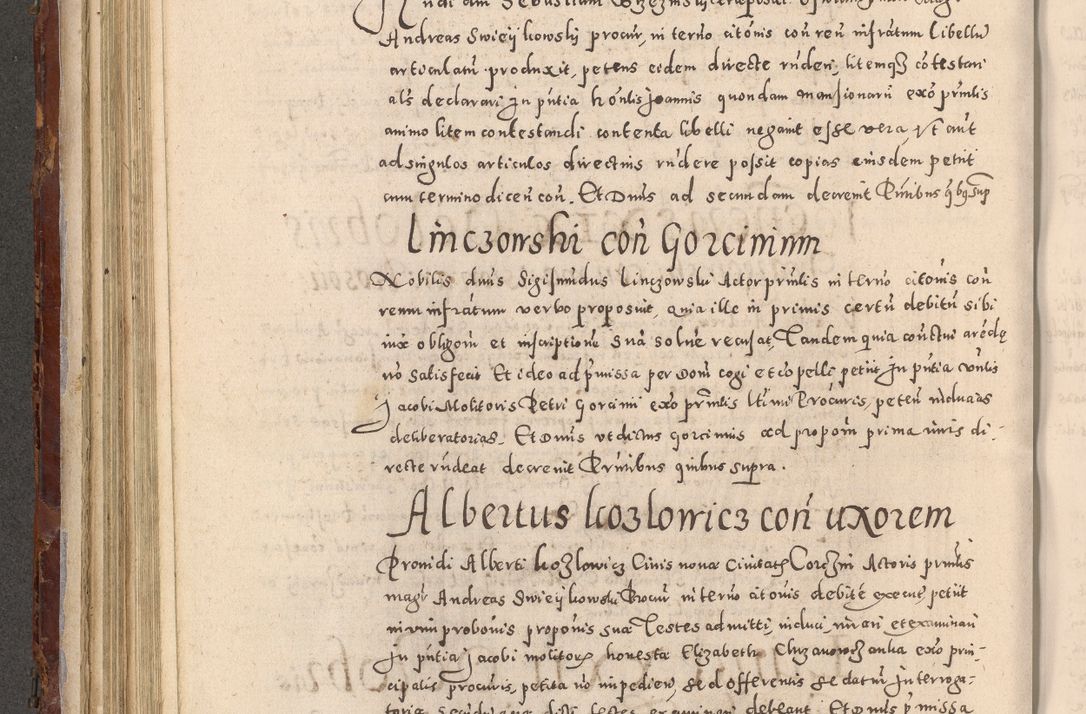 Andreas Swieykowsky procur, in termo citonis con reu infratum libellu
articulatu produxit, petens eidem directe rnderi, litemqz cotestari
als declarari In pntia honlis Joannis quondam mansionarii exo prnlis
animo litem contestandi contenta libelli negavit esse vera, Vt aut
ad singulos articulos directius rndere possit copias eiusdem petiit
cum termino dicen con. Et Dnus ad secundam decrevit Pntibus qbq sup
Linczowski con Gorcinium
Nobilis dnus Sigismundus Linczowski Actor prnlis in termo citonis con
reum infratum verbo proposuit, quia ille in primis certu debitu sibi
iux obligom et inscriptione sua solve recusat, Tandem quia conctui arede
no satisfecit Et ideo ad pmissa per Dom cogi et copelli petiit In pntia vnlis
Jacobi Molitoris Petri Gorcinii exo prnlis ltimi Procuris, peten inducias
deliberatorias. Et Dnus vt dictus Gorcinius ad propom prima iuris di-
recte rndeat decrevit Pntibus quibus supra.
Albertus Kozlowicz con uxorem
Providi Alberti Kozlowicz Civis nova Civitatis Corczin Actoris prnlis
magr Andreas Swieykowski Procur in termo citonis debite execut, petiit
in vim probonis proponis sua Testes admitti, induci iurari et examinari
In pntia Jacobi molitor honesta Elizabeth Chrzanowczanka exo prin-
cipalis procuris, petita no impedien, sed offerentis se datur Interroga-
toria